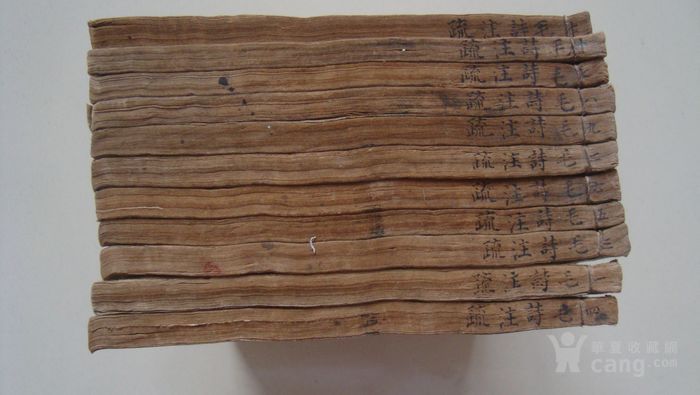 毛詩注疏
毛詩注疏
毛詩注疏
毛詩注疏 八
毛詩注疏 九
毛詩注疏 二
毛詩注疏
毛詩注疏 五
毛詩注疏 三
毛詩注疏 一
毛詩注疏 四
華夏收藏網
cang.com